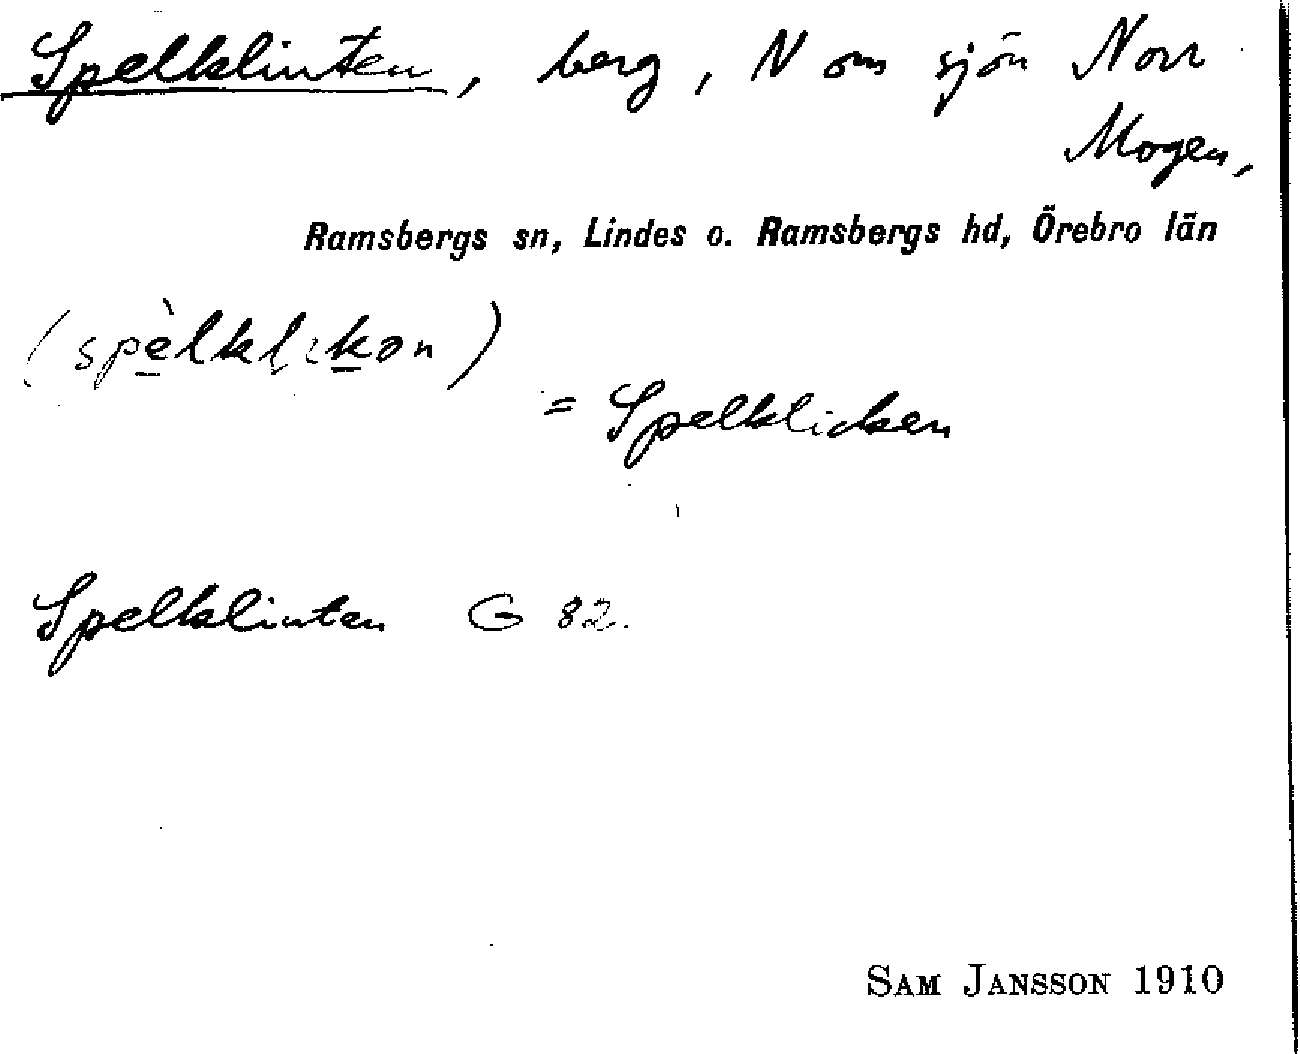 Spelklinten, berg, N om sjön Norr
Mogen,
Ramsbergs sn, Lindes o. Ramsbergs hd, Örebro län
= Spelklicken
Spelklinten G 82.
SAM JANSSON 1910